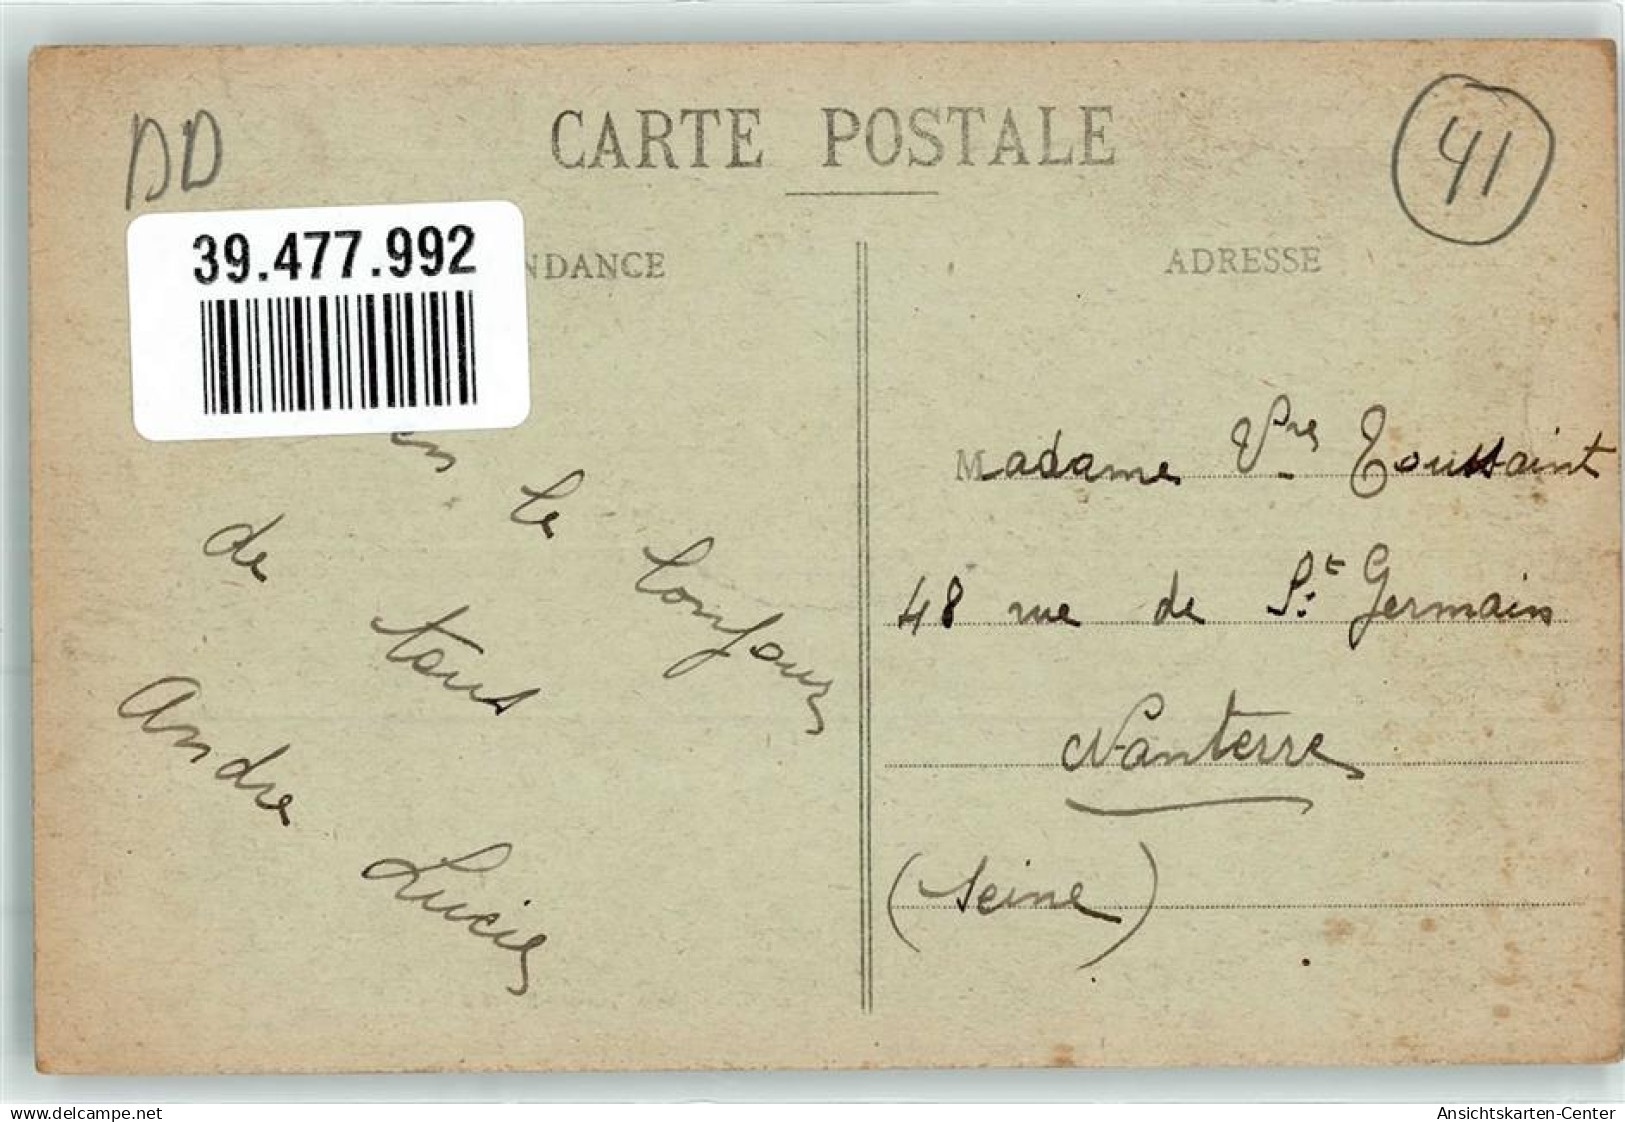 DD
CARTE POSTALE
41
39.477.992
NDANCE
ADRESSE
en le bonjour
de tous
Andre Lucie
Madame Vve Toussaint
48 rue de St Germain
Nanterre
(Seine)
www.delcampe.net
Ansichtskarten-Center